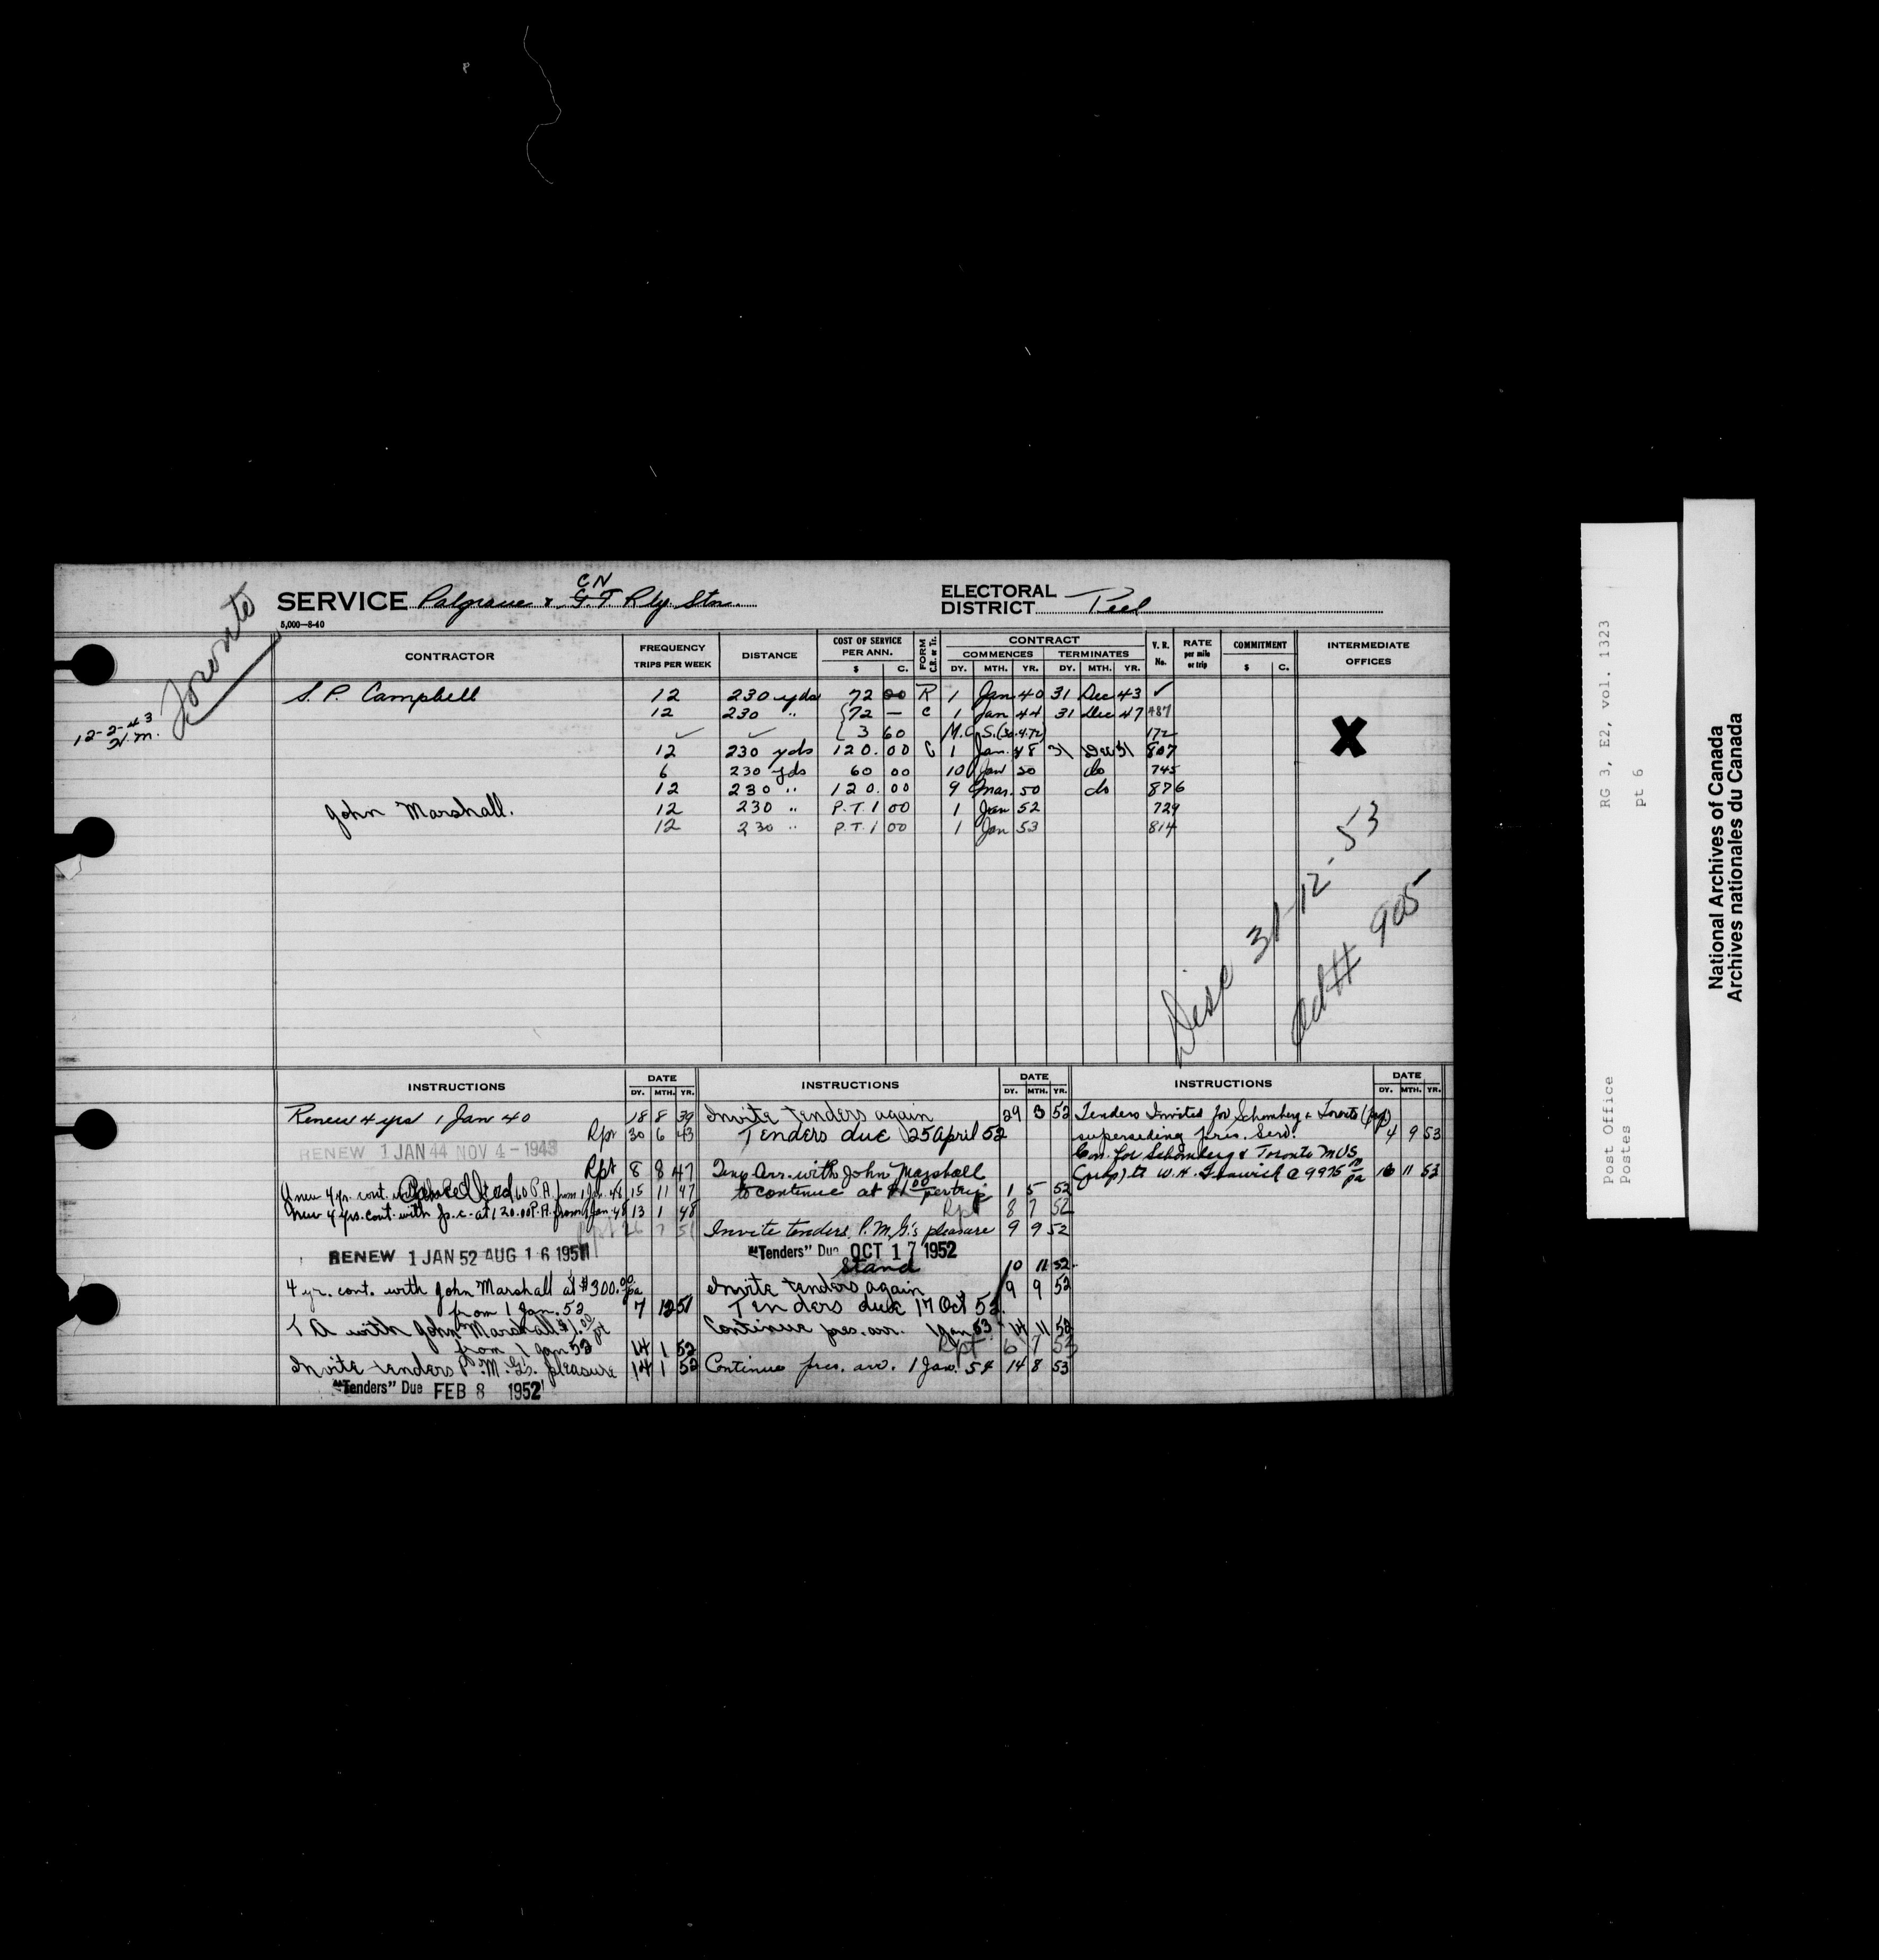 Toronto
12-2-43
H.M.
SERVICE Palgrave & G.T. CN Rly. Stn.
5,000—8-40
ELECTORAL DISTRICT Peel
CONTRACTOR FREQUENCY TRIPS PER WEEK DISTANCE COST OF SERVICE PER ANN. $ C. FORM C.R. or Tr. CONTRACT COMMENCES DY. MTH. YR. TERMINATES DY. MTH. YR. V.R. No. RATE per mile or trip COMMITMENT $ C. INTERMEDIATE OFFICES
S. P. Campbell 12 230 yds 72 00 R 1 Jan 40 31 Dec 43 ✓
12 230 " 72 — C 1 Jan 44 31 Dec 47 487
✓ ✓ 3 60 M.C.S. 172
12 230 yds 120.00 C 1 Jan. 48 31 Dec 51 807
6 230 yds 60 00 10 Jan 50 do 745
12 230 " 120.00 9 Mar. 50 do 876
John Marshall. 12 230 " P.T. 1 00 1 Jan 52 729
12 230 " P.T. 1 00 1 Jan 53 814
X
Disc 31-12-53
905
INSTRUCTIONS DATE DY. MTH. YR.
Renew 4 yrs 1 Jan 40 18 8 39
Rpt 30 6 43
RENEW 1 JAN 44 NOV 4 - 1943
Rpt 8 8 47
Cancelled
New 4 yr. cont. 60 P.A. from 1 Jan. 48 15 11 47
New 4 yrs. cont. with p.c. at 120.00 P.A. from 1 Jan. 48 13 1 48
Rpt 26 7 51
RENEW 1 JAN 52 AUG 16 1951
4 yr. cont. with John Marshall at $300.00 pa
from 1 Jan. 52 7 12 51
T A with John Marshall $1.00 pt
from 1 Jan 52 14 1 52
Invite tenders P.M.G's. pleasure 14 1 52
"Tenders" Due FEB 8 1952
INSTRUCTIONS DATE DY. MTH. YR.
Invite tenders again 29 3 52
Tenders due 25 April 52
Temp Arr. with John Marshall
to continue at $1.00 per trip 1 5 52
Rpt 8 7 52
Invite tenders P.M.G.'s pleasure 9 9 52
"Tenders" Due OCT 17 1952
Stand 10 11 52
Invite tenders again 9 9 52
Tenders due 17 Oct 52.
Continue pres. arr. 1 Jan 53 14 11 52
Rpt 6 7 53
Continue pres. arr. 1 Jan. 54 14 8 53
INSTRUCTIONS DATE DY. MTH. YR.
Tenders Invited for Schomberg & Toronto
superseding pres. Serv. 4 9 53
Con. for Schomberg & Toronto MUS
to W. H. @ 9975 pa 16 11 53
RG 3, E2, vol. 1323
pt 6
Post Office
Postes
National Archives of Canada
Archives nationales du Canada